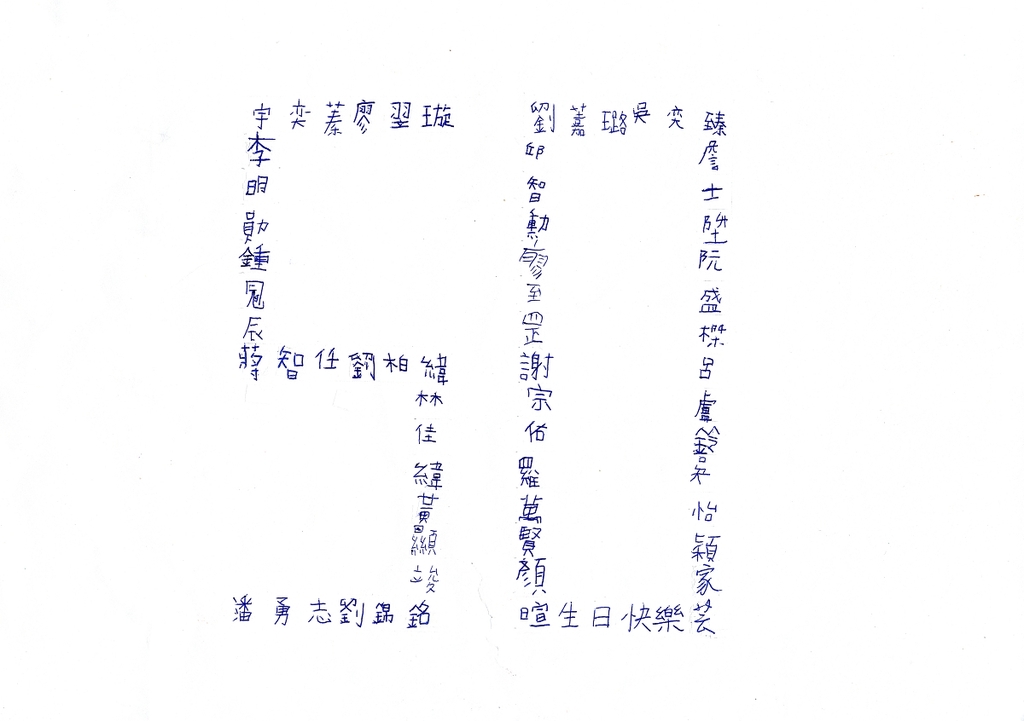 宇奕蓁廖翌璇
李
明
勛
鍾
冠
辰
蔣智任劉柏緯
林
佳
緯
黃
顯
竣
潘勇志劉錦銘
劉嘉璐吳奕臻
邱
智
勳
廖
至
罡
謝
宗
佑
羅
萬
賢
顏
暄生日快樂芸
詹
士
陞
阮
盛
榤
呂
盧
鈴
怡
穎
家